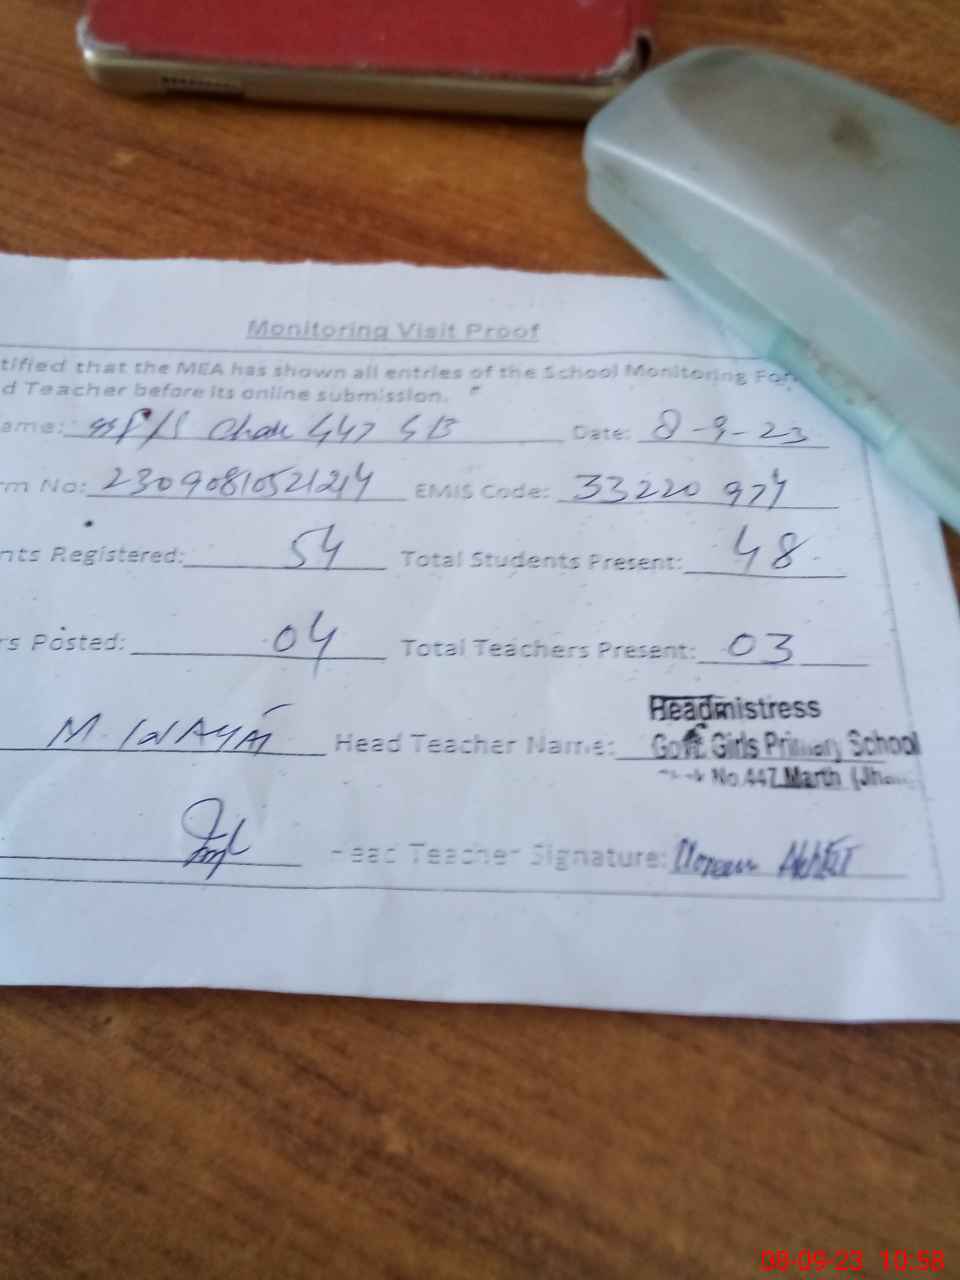 Monitoring Visit Proof
tified that the MEA has shown all entries of the School Monitoring For
d Teacher before its online submission.
ame: Chak 447 Date: 8-9-23
rm No: 23090810521214 EMIS Code: 33220 974
nts Registered: 54 Total Students Present: 48
rs Posted: 04 Total Teachers Present: 03
Headmistress
M. INAYAT Head Teacher Name: Govt. Girls Primary School
No.447 Marth (Jha
Head Teacher Signature: Akhtar
08-09-23 10:58